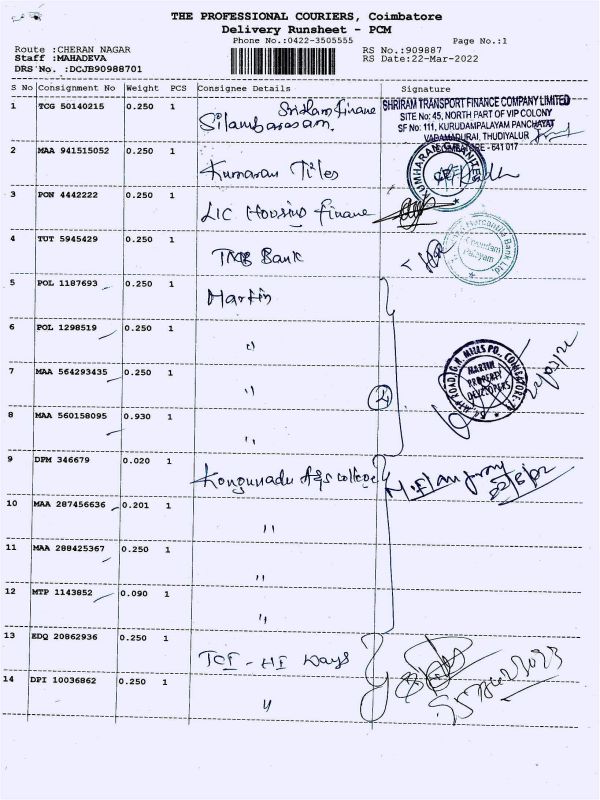 THE PROFESSIONAL COURIERS, Coimbatore
Delivery Runsheet - PCM
Phone No.:0422-3505555
Page No.:1
Route :CHERAN NAGAR
RS No.:909887
Staff :MAHADEVA
RS Date:22-Mar-2022
DRS No. :DCJB90988701
S No Consignment No Weight PCS Consignee Details Signature
1 TCG 50140215 0.250 1 Silambarasan. Sriram finane
SHRIRAM TRANSPORT FINANCE COMPANY LIMITED
SITE No: 45, NORTH PART OF VIP COLONY
SF No: 111, KURUDAMPALAYAM PANCHAYAT
VADAMADURAI, THUDIYALUR
- 641 017
2 MAA 941515052 0.250 1 Kumaran Tiles
KUMHARAN GRANITES
3 PON 4442222 0.250 1 LIC Housing finane
4 TUT 5945429 0.250 1 TMB Bank
Mercantile Bank Ltd.
5 POL 1187693 0.250 1 Martin
6 POL 1298519 0.250 1 "
7 MAA 564293435 0.250 1 "
MARTIN
PROPERTY
DEVELOPERS
G.N. MILLS PO., COIMBATORE
8 MAA 560158095 0.930 1 "
9 DPM 346679 0.020 1 Kongunadu A&S college
10 MAA 287456636 0.201 1 "
11 MAA 288425367 0.250 1 "
12 MTP 1143852 0.090 1 "
13 EDQ 20862936 0.250 1 TCI - HI Ways
14 DPI 10036862 0.250 1 "